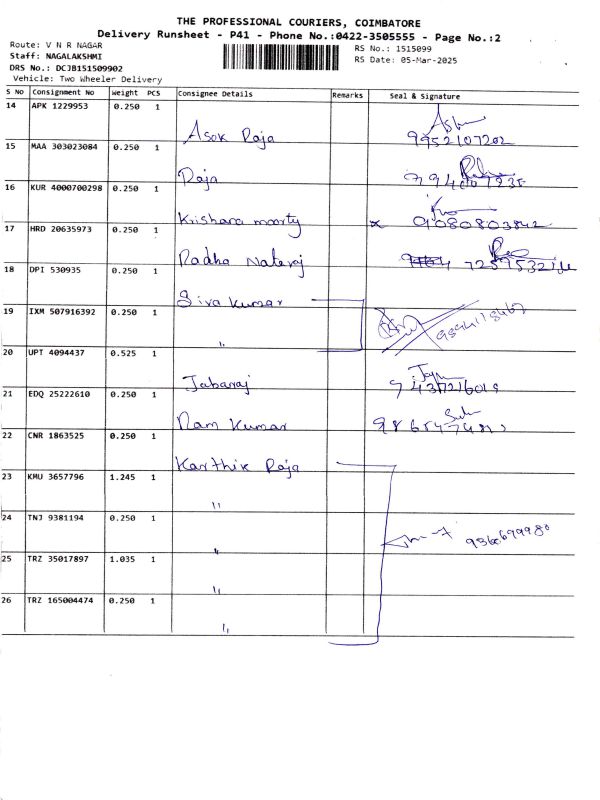 THE PROFESSIONAL COURIERS, COIMBATORE
Delivery Runsheet - P41 - Phone No.:0422-3505555 - Page No.:2
Route: V N R NAGAR
RS No.: 1515099
Staff: NAGALAKSHMI
RS Date: 05-Mar-2025
DRS No.: DCJB151509902
Vehicle: Two Wheeler Delivery
S No Consignment No Weight PCS Consignee Details Remarks Seal & Signature
14 APK 1229953 0.250 1
Asok Raja 9952107202
15 MAA 303023084 0.250 1
Raja
16 KUR 4000700298 0.250 1
Krishara moorty x 9080803842
17 HRD 20635973 0.250 1
Radha Nataraj
18 DPI 530935 0.250 1
Siva Kumar
19 IXM 507916392 0.250 1
"
9894118467
20 UPT 4094437 0.525 1
Jabaraj
21 EDQ 25222610 0.250 1
Ram Kumar
22 CNR 1863525 0.250 1
Karthik Raja
23 KMU 3657796 1.245 1
"
24 TNJ 9381194 0.250 1
"
9360699980
25 TRZ 35017897 1.035 1
"
26 TRZ 165004474 0.250 1
"